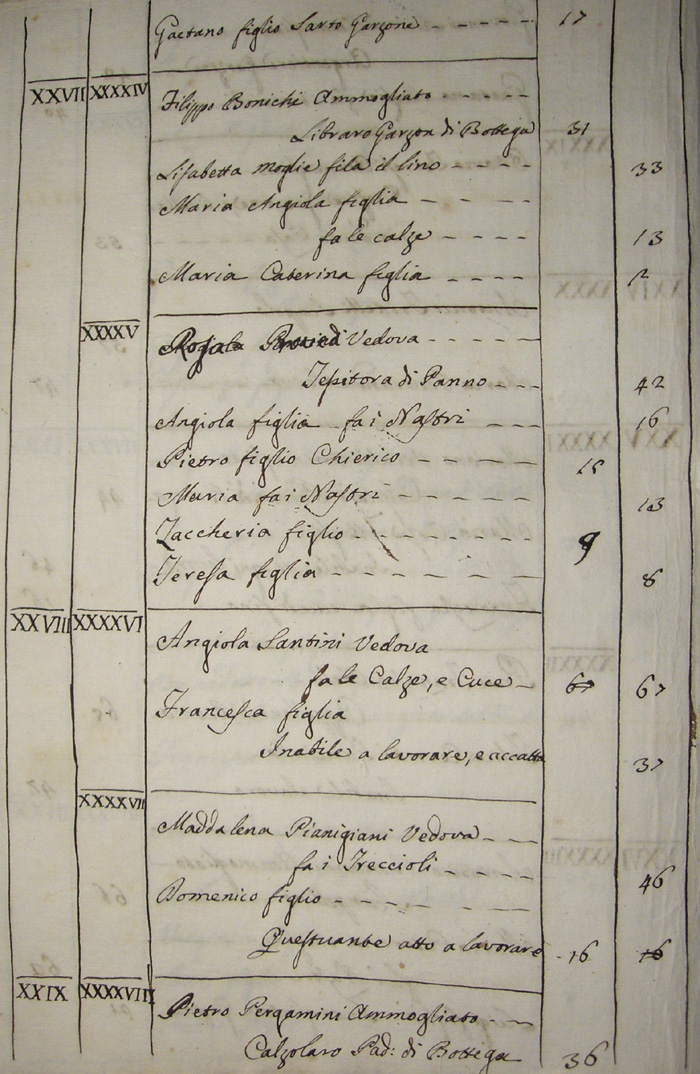 Gaetano figlio Sarto Garzone 17
XXVII XXXXIV Filippo Bonichi Ammogliato
Libraro Garzon di Bottega 31
Lisabetta moglie fila il lino 33
Maria Angiola figlia
fa le calze 13
Maria Caterina figlia 2
XXXXV Rosala Vedova
Tesitora di Panno 42
Angiola figlia fa i Nastri 16
Pietro figlio Chierico 15
Maria fa i Nastri 13
Zaccheria figlio 9
Teresa figlia 8
XXVIII XXXXVI Angiola Santini Vedova
fa le Calze, e Cuce 67 67
Francesca figlia
Inabile a lavorare, e accatta 37
XXXXVII
Maddalena Pianigiani Vedova
fa i Treccioli 46
Domenico figlio
Questuante atto a lavorare 16 16
XXIX XXXXVIII Pietro Pergamini Ammogliato
Calzolaro Pad: di Bottega 36